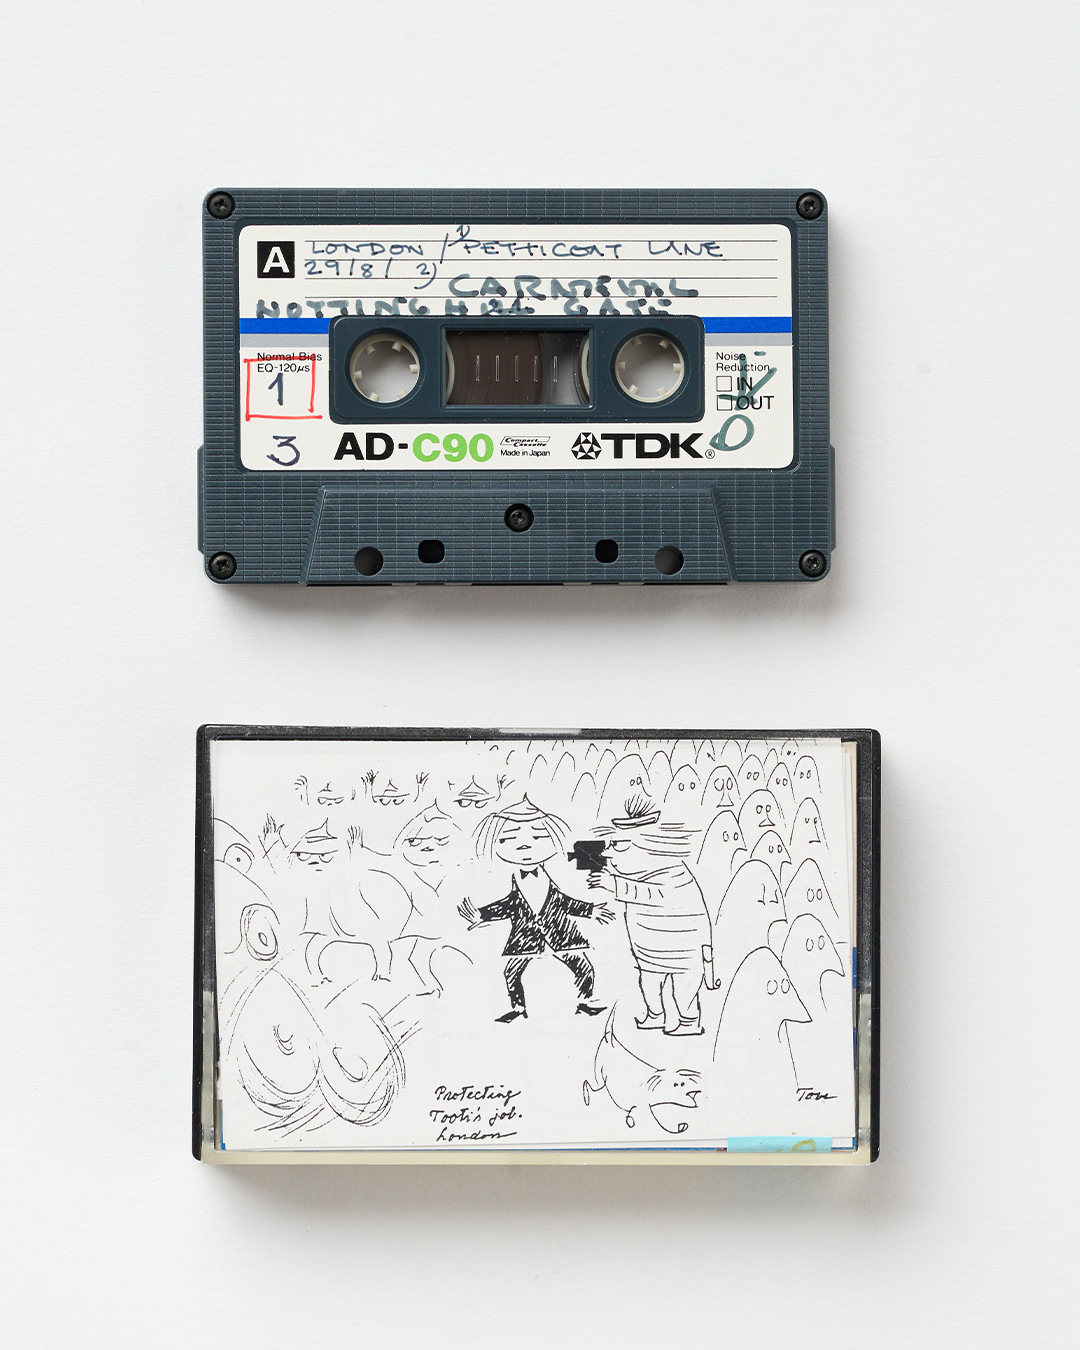 A
LONDON / 1) PETTICOAT LANE
29/8/ 2) CARNEVAL
NOTTING HILL GATE
Normal Bias
EQ-120μs
1
3
Noise
Reduction
IN
OUT
AD-C90
Compact
Cassette
Made in Japan
TDK®
Protecting
Tooti's job.
London
Tove